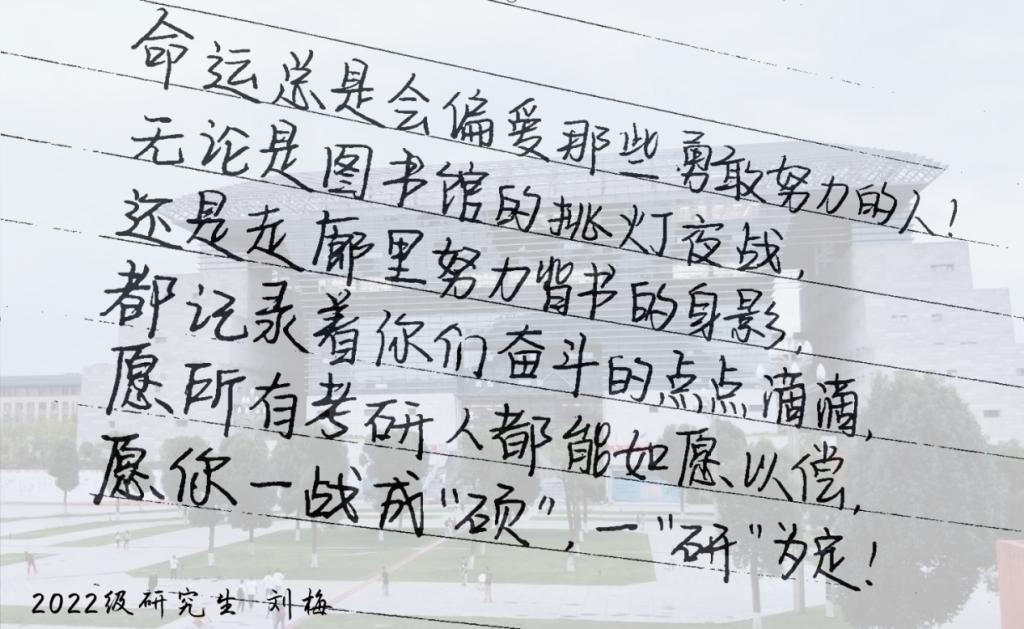 命运总是会偏爱那些勇敢努力的人!
无论是图书馆的挑灯夜战,
还是走廊里努力背书的身影,
都记录着你们奋斗的点点滴滴,
愿所有考研人都能如愿以偿,
愿你一战成“硕”,一“研”为定!
2022级研究生 刘梅